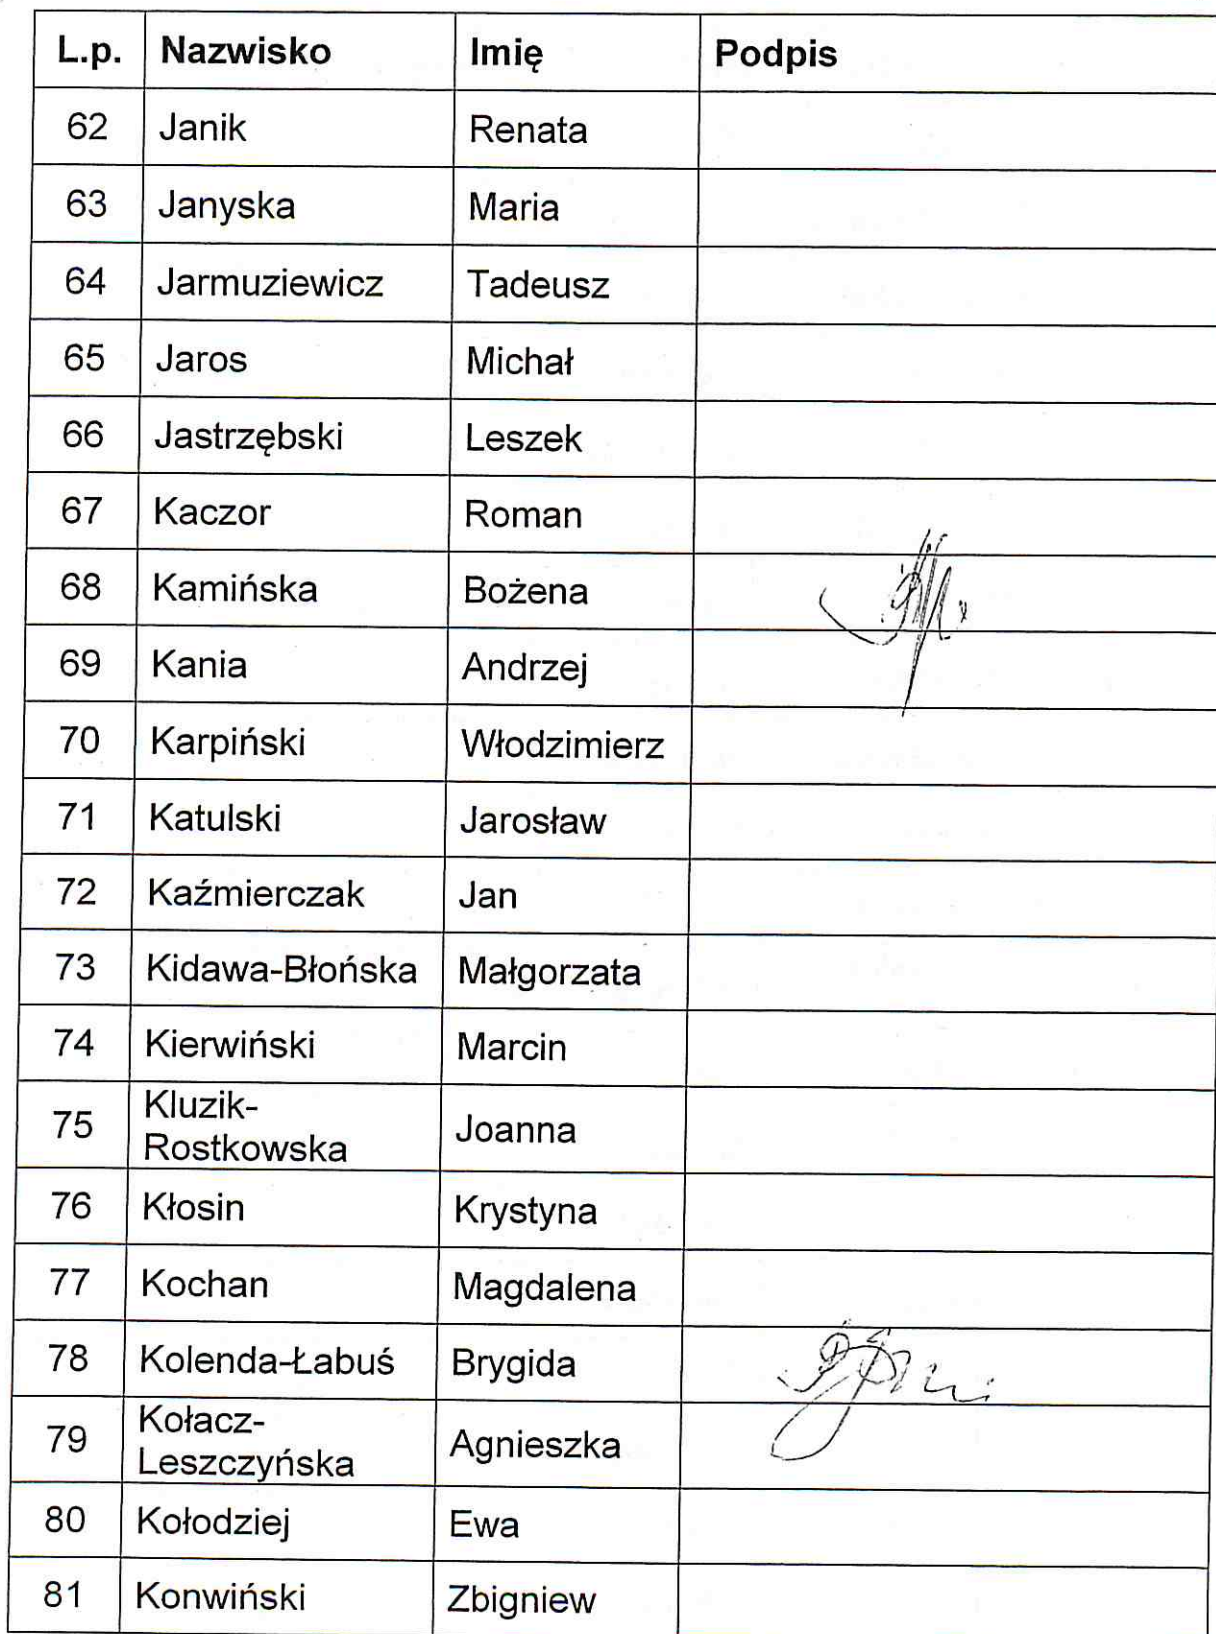 L.p. Nazwisko Imię Podpis
62 Janik Renata
63 Janyska Maria
64 Jarmuziewicz Tadeusz
65 Jaros Michał
66 Jastrzębski Leszek
67 Kaczor Roman
68 Kamińska Bożena
69 Kania Andrzej
70 Karpiński Włodzimierz
71 Katulski Jarosław
72 Kaźmierczak Jan
73 Kidawa-Błońska Małgorzata
74 Kierwiński Marcin
75 Kluzik-
Rostkowska Joanna
76 Kłosin Krystyna
77 Kochan Magdalena
78 Kolenda-Łabuś Brygida
79 Kołacz-
Leszczyńska Agnieszka
80 Kołodziej Ewa
81 Konwiński Zbigniew